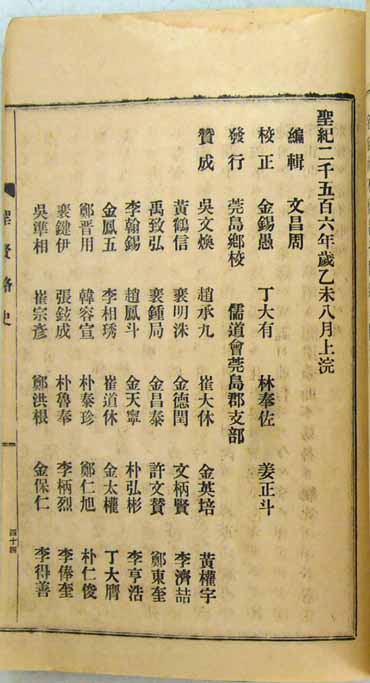 聖紀二千五百六年歲乙未八月上浣
編輯 文昌周
校正 金錫愚 丁大有 林奉佐 姜正斗
發行 莞島鄕校 儒道會莞島郡支部
贊成 吳文煥 趙承九 崔大休 金英培 黃權宇
黃鶴信 裵明洙 金德閏 文柄賢 李濟喆
禹致弘 裵鍾局 金昌泰 許文贊 鄭東奎
李翰錫 趙鳳斗 金天寧 朴弘彬 李亨浩
金鳳五 李相琇 崔道休 金太權 丁大膺
鄭晋用 韓容宣 朴泰珍 鄭仁旭 朴仁俊
裵鍵伊 張鉉成 朴魯奉 李柄烈 李俸奎
吳準相 崔宗彥 鄭洪根 金保仁 李得善
聖賢略史
四十四